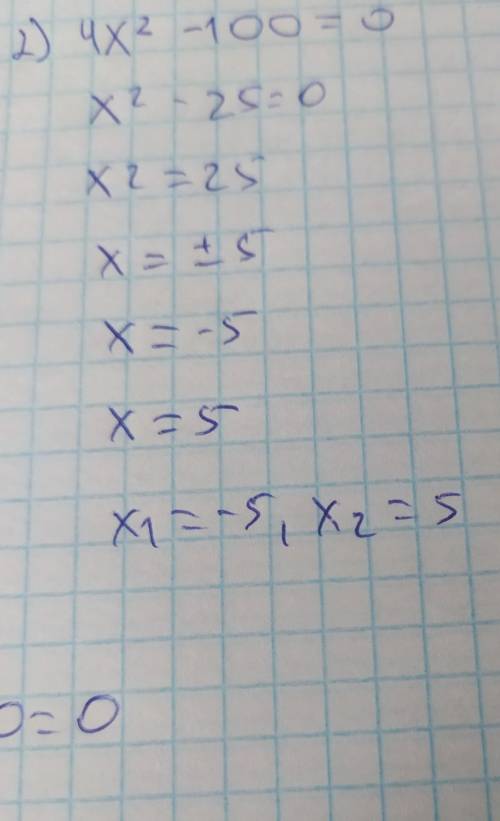 2) 4x² -100 = 0
x² - 25 = 0
x2 = 25
x = ±5
x = -5
x = 5
x₁ = -5, x₂ = 5
0 = 0